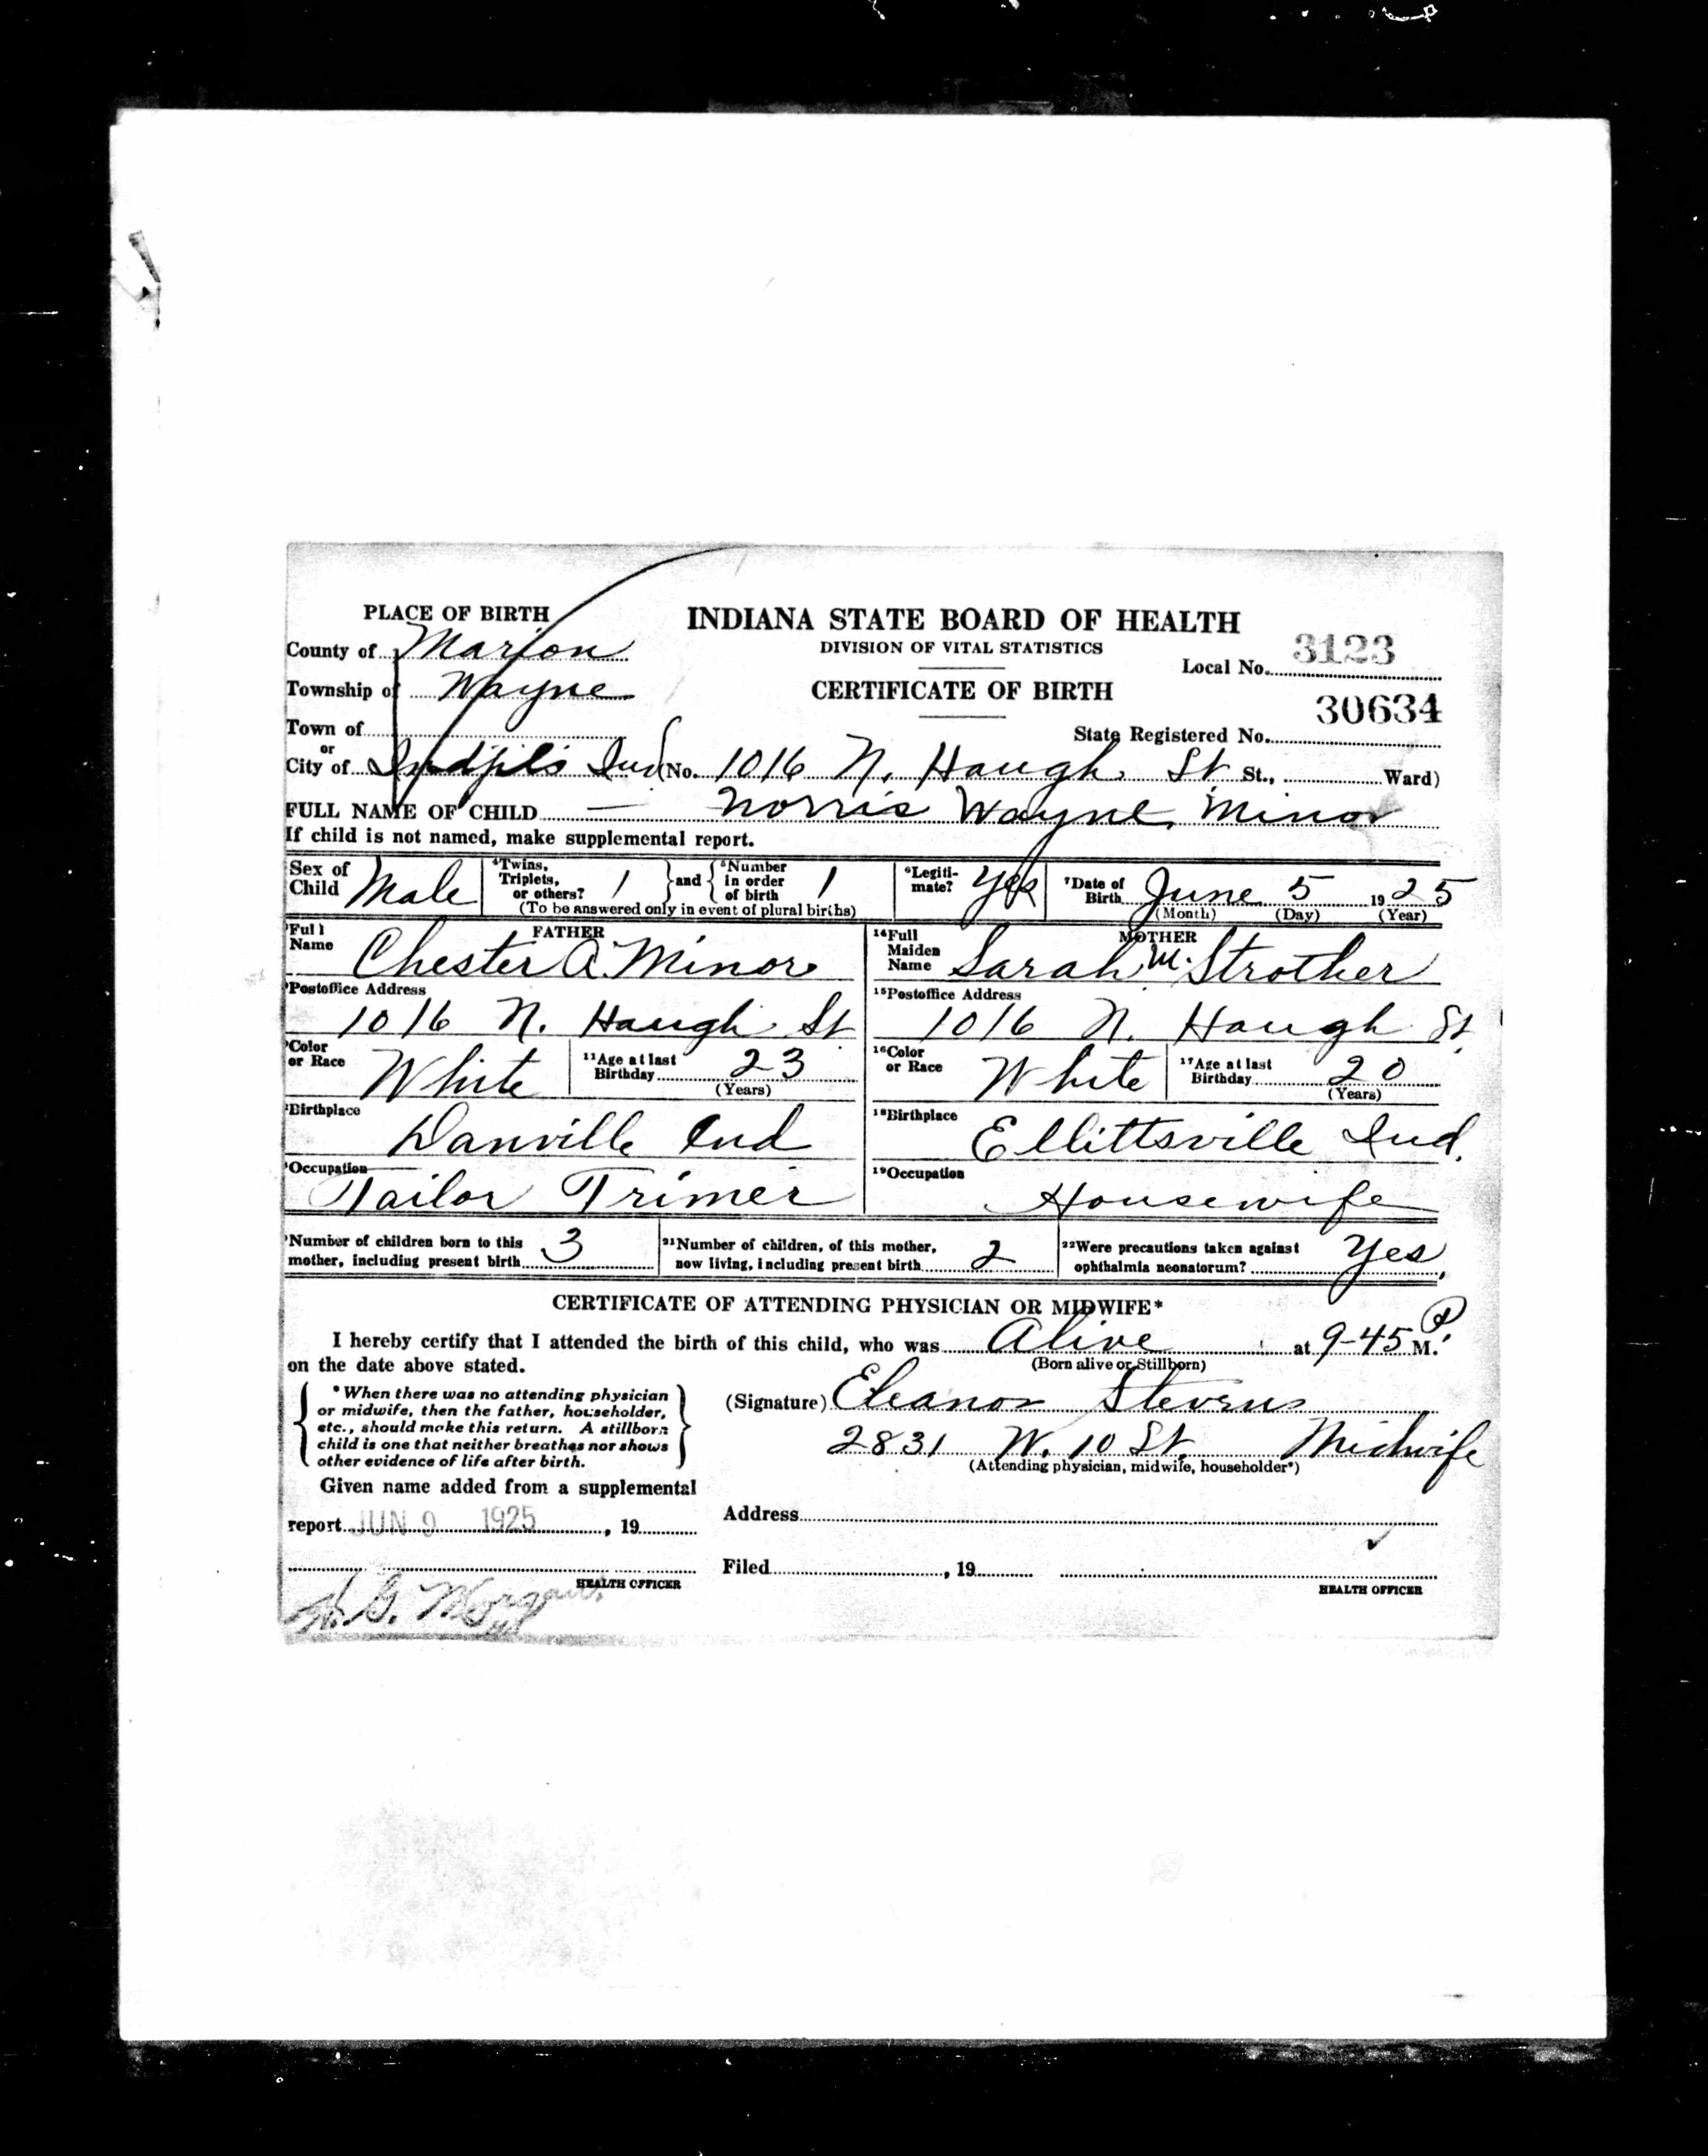 PLACE OF BIRTH
INDIANA STATE BOARD OF HEALTH
County of Marion
DIVISION OF VITAL STATISTICS
Local No. 3123
Township of Wayne
CERTIFICATE OF BIRTH
30634
Town of
State Registered No.
or
City of Indpls Ind (No. 1016 N. Haugh St St., Ward)
FULL NAME OF CHILD Norris Wayne Minor
If child is not named, make supplemental report.
Sex of Child Male
4Twins, Triplets, or others? 1 and 5Number in order of birth 1
(To be answered only in event of plural births)
6Legiti-mate? Yes
7Date of Birth June 5 1925
(Month) (Day) (Year)
FATHER
Full Name Chester A. Minor
MOTHER
14Full Maiden Name Sarah M. Strother
Postoffice Address
1016 N. Haugh St
15Postoffice Address
1016 N. Haugh St.
Color or Race White
11Age at last Birthday 23
(Years)
16Color or Race White
17Age at last Birthday 20
(Years)
Birthplace
Danville Ind
18Birthplace
Ellittsville Ind.
Occupation
Tailor Trimer
19Occupation
Housewife
Number of children born to this mother, including present birth 3
21Number of children, of this mother, now living, including present birth 2
22Were precautions taken against ophthalmia neonatorum? Yes,
CERTIFICATE OF ATTENDING PHYSICIAN OR MIDWIFE*
I hereby certify that I attended the birth of this child, who was Alive at 9-45 P. M.
on the date above stated.
(Born alive or Stillborn)
*When there was no attending physician
or midwife, then the father, householder,
etc., should make this return. A stillborn
child is one that neither breathes nor shows
other evidence of life after birth.
(Signature) Eleanor Stevens
2831 W. 10 St. Midwife
(Attending physician, midwife, householder*)
Given name added from a supplemental
report JUN 9 1925, 19
Address
Filed , 19
HEALTH OFFICER
HEALTH OFFICER
H. G. Morgan